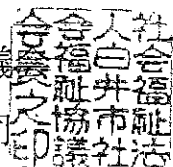 社会福祉法
人白井市社
会福祉協議
会會長之印